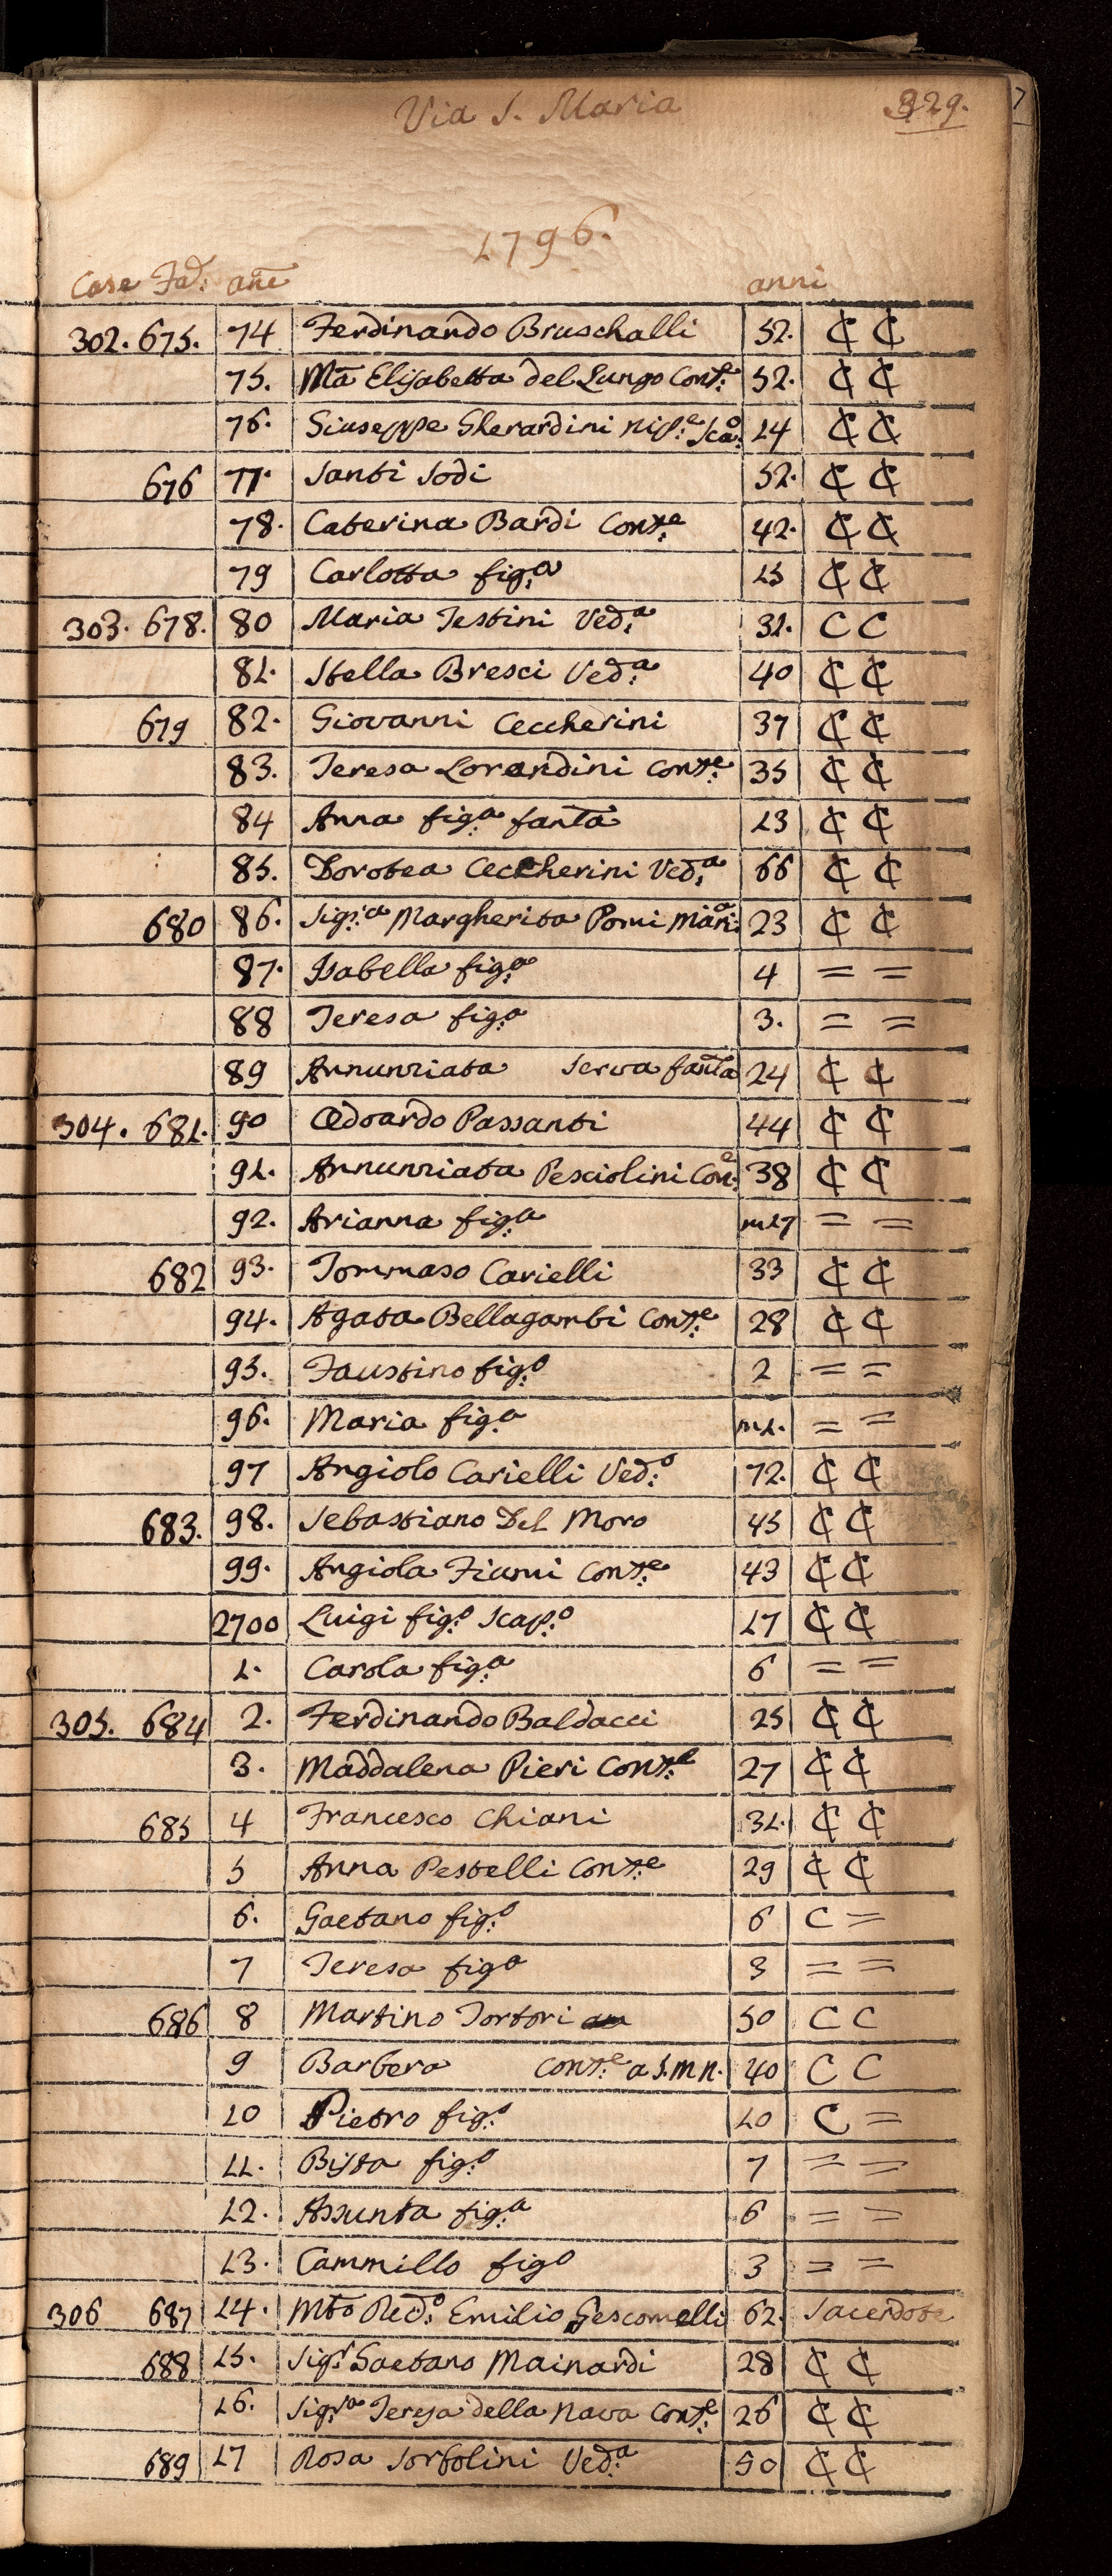 Via S. Maria 329.
1796.
Case Fad: anē anni
302. 675. 74 Ferdinando Bruschalli 52. ₵ ₵
75. Mā Elisabetta del Lungo Cont.e 52. ₵ ₵
76. Giuseppe Gherardini nip.e Sca.o 14 ₵ ₵
676 77. Santi Sodi 52. ₵ ₵
78. Caterina Bardi Cons.e 42. ₵ ₵
79 Carlotta fig.a 15 ₵ ₵
303. 678. 80 Maria Testini Ved.a 31. C C
81. Stella Bresci Ved.a 40 ₵ ₵
679 82. Giovanni Ceccherini 37 ₵ ₵
83. Teresa Lorandini Cons.e 35 ₵ ₵
84 Anna fig.a fanta 13 ₵ ₵
85. Dorotea Ceccherini Ved.a 66 ₵ ₵
680 86. Sig.ra Margherita Pomi Mari.a 23 ₵ ₵
87. Isabella fig.a 4 = =
88 Teresa fig.a 3. = =
89 Annunziata Serva fanta 24 ₵ ₵
304. 681. 90 Odoardo Passanti 44 ₵ ₵
91. Annunziata Pesciolini Con.e 38 ₵ ₵
92. Arianna fig.a m17 = =
682 93. Tommaso Carielli 33 ₵ ₵
94. Agata Bellagambi Cons.e 28 ₵ ₵
95. Faustino fig.o 2 = =
96. Maria fig.a m1. = =
97 Angiolo Carielli Ved.o 72. ₵ ₵
683. 98. Sebastiano Del Moro 45 ₵ ₵
99. Angiola Fiumi Cons.e 43 ₵ ₵
2700 Luigi fig.o Scap.o 17 ₵ ₵
1. Carola fig.a 6 = =
305. 684 2. Ferdinando Baldacci 25 ₵ ₵
3. Maddalena Pieri Cons.e 27 ₵ ₵
685 4 Francesco Chiani 31. ₵ ₵
5 Anna Pestelli Cons.e 29 ₵ ₵
6. Gaetano fig.o 6 C =
7 Teresa fig.a 3 = =
686 8 Martino Tortori 50 C C
9 Barbera Cons.e a S.M.N. 40 C C
10 Pietro fig.o 10 C =
11. Bista fig.o 7 = =
12. Assunta fig.a 6 = =
13. Cammillo figo 3 = =
306 687 14. Mto Red.o Emilio Gescomelli 62. Sacerdote
688 15. Sig.r Gaetano Mainardi 28 ₵ ₵
16. Sig.ra Teresa della Nava Cons.e 26 ₵ ₵
689 17 Rosa Sorbolini Ved.a 50 ₵ ₵